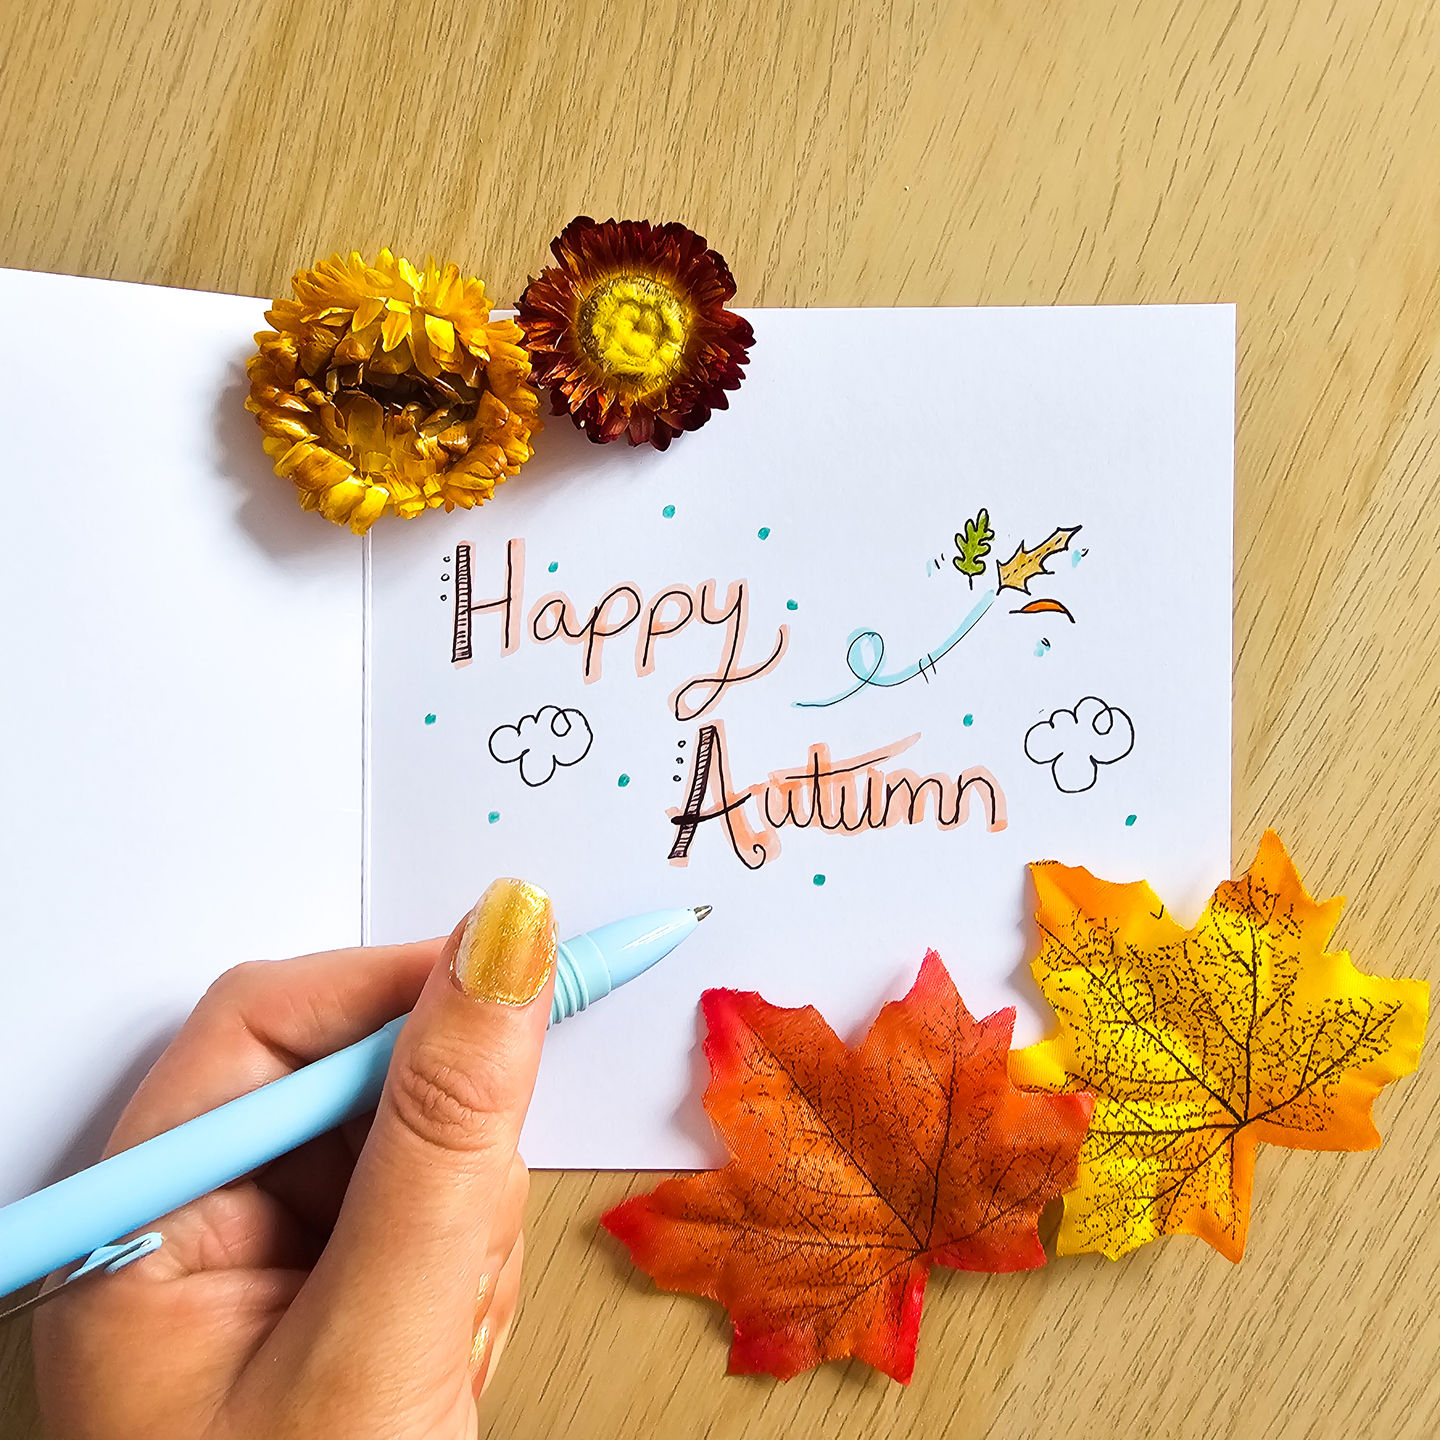 Happy
Autumn